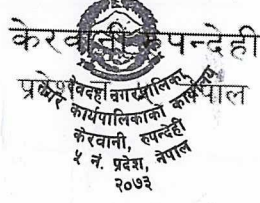 केरवानी, रुपन्देही
प्रदेश नेपाल
देवदह नगरपालिका
नगर कार्यपालिकाको कार्यालय
केरवानी, रुपन्देही
५ नं. प्रदेश, नेपाल
२०७३